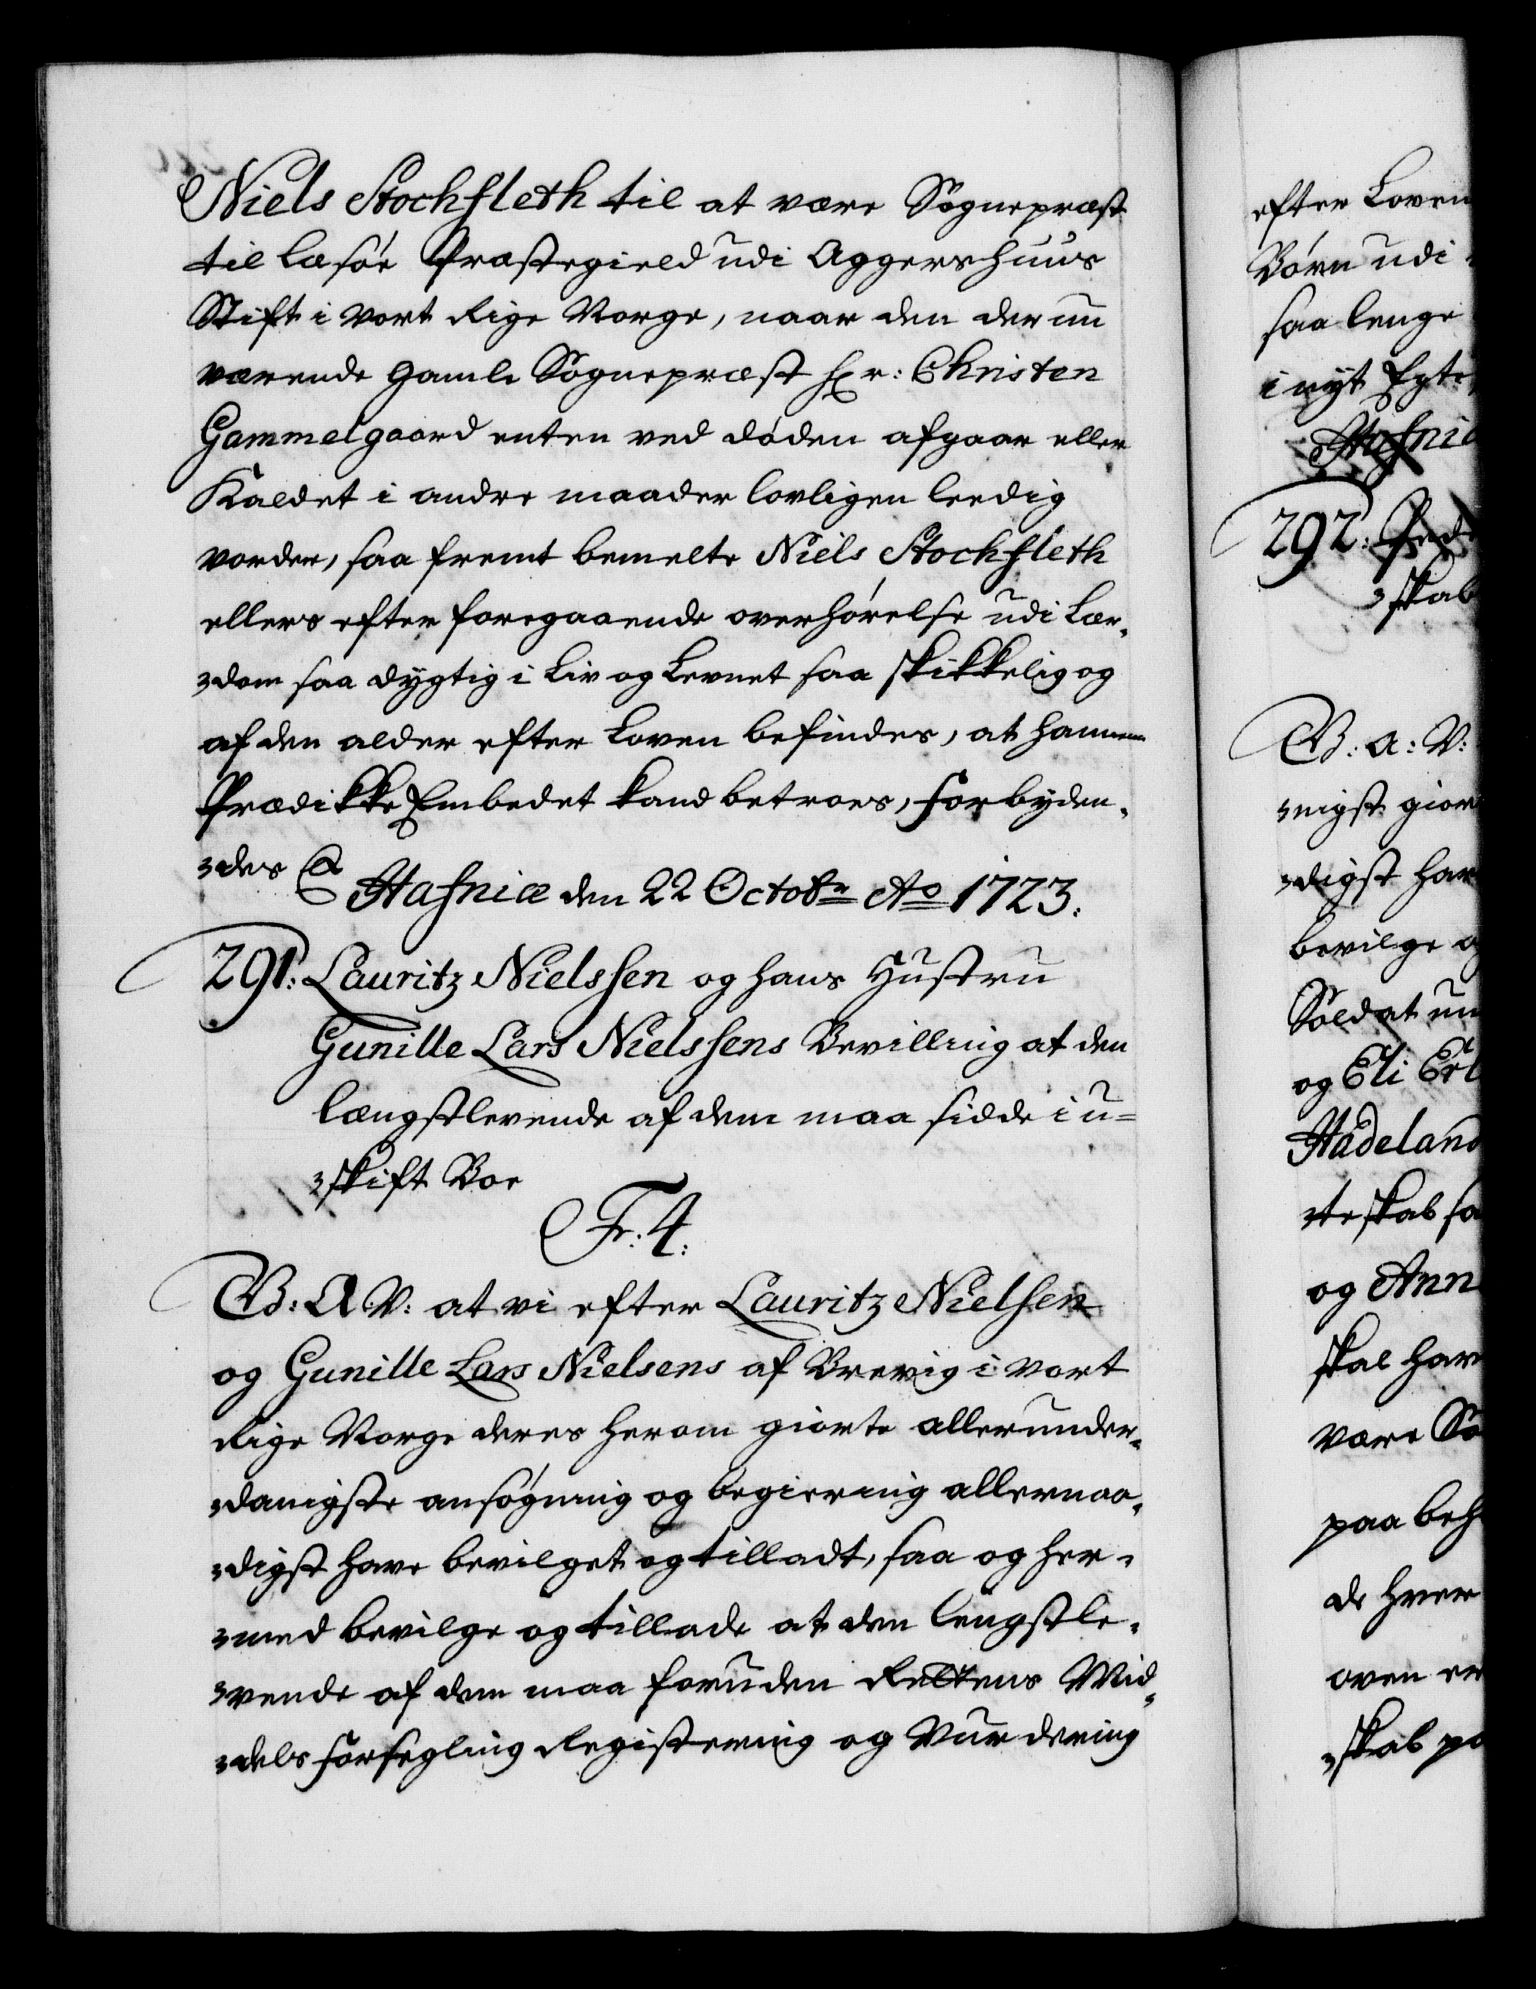 Niels Stochfleth til at være Sognepræst
til Læsöe Præstegield udi Aggershuus
Stift i Vort Rige Norge, naar den der nu
værende gamle Sognepræst Hr: Christen
Gammelgaard enten ved döden afgaar eller
Kaldet i andre maader lovligen leedig
vorder, saa fremt bemelte Niels Stochfleth
ellers efter foregaaende overhörelse udi Lær-
dom saa dygtig i Liv og Levnet saa skikkelig og
af den alder efter Loven befindes, at hannem
Prædikke Embedet kand betroes, forbyden-
des &
Hafniæ den 22 Octobr Ao 1723.
291. Lauritz Nielssen og hans Hustru
Gunille Lars Nielssens Bevilling at den
længstlevende af dem maa sidde i u=
skift Boe
Fr: 4:
G: A V: at vi efter Lauritz Nielsen
og Gunille Lars Nielsens af Brevig i vort
Rige Norge deres herom giorte allerunder-
danigste ansögning og begiering allernaa-
digst have bevilget og tilladt, saa og her-
med bevilge og tillade at den lengstle-
vende af dem maa foruden Rettens Mid-
dels forsegling Registering og Vurdering
efter Loven
Börn udi
saa lenge
i nyt Egte
Hafniæ
292:
skab
G: a: V:
nigst gior
digst hav
bevilge og
Soldat un
og Eli Erl
Hadeland
teskab sa
og Ann
skal hav
være Sö
paa beh
de hver
oven er
skab pa